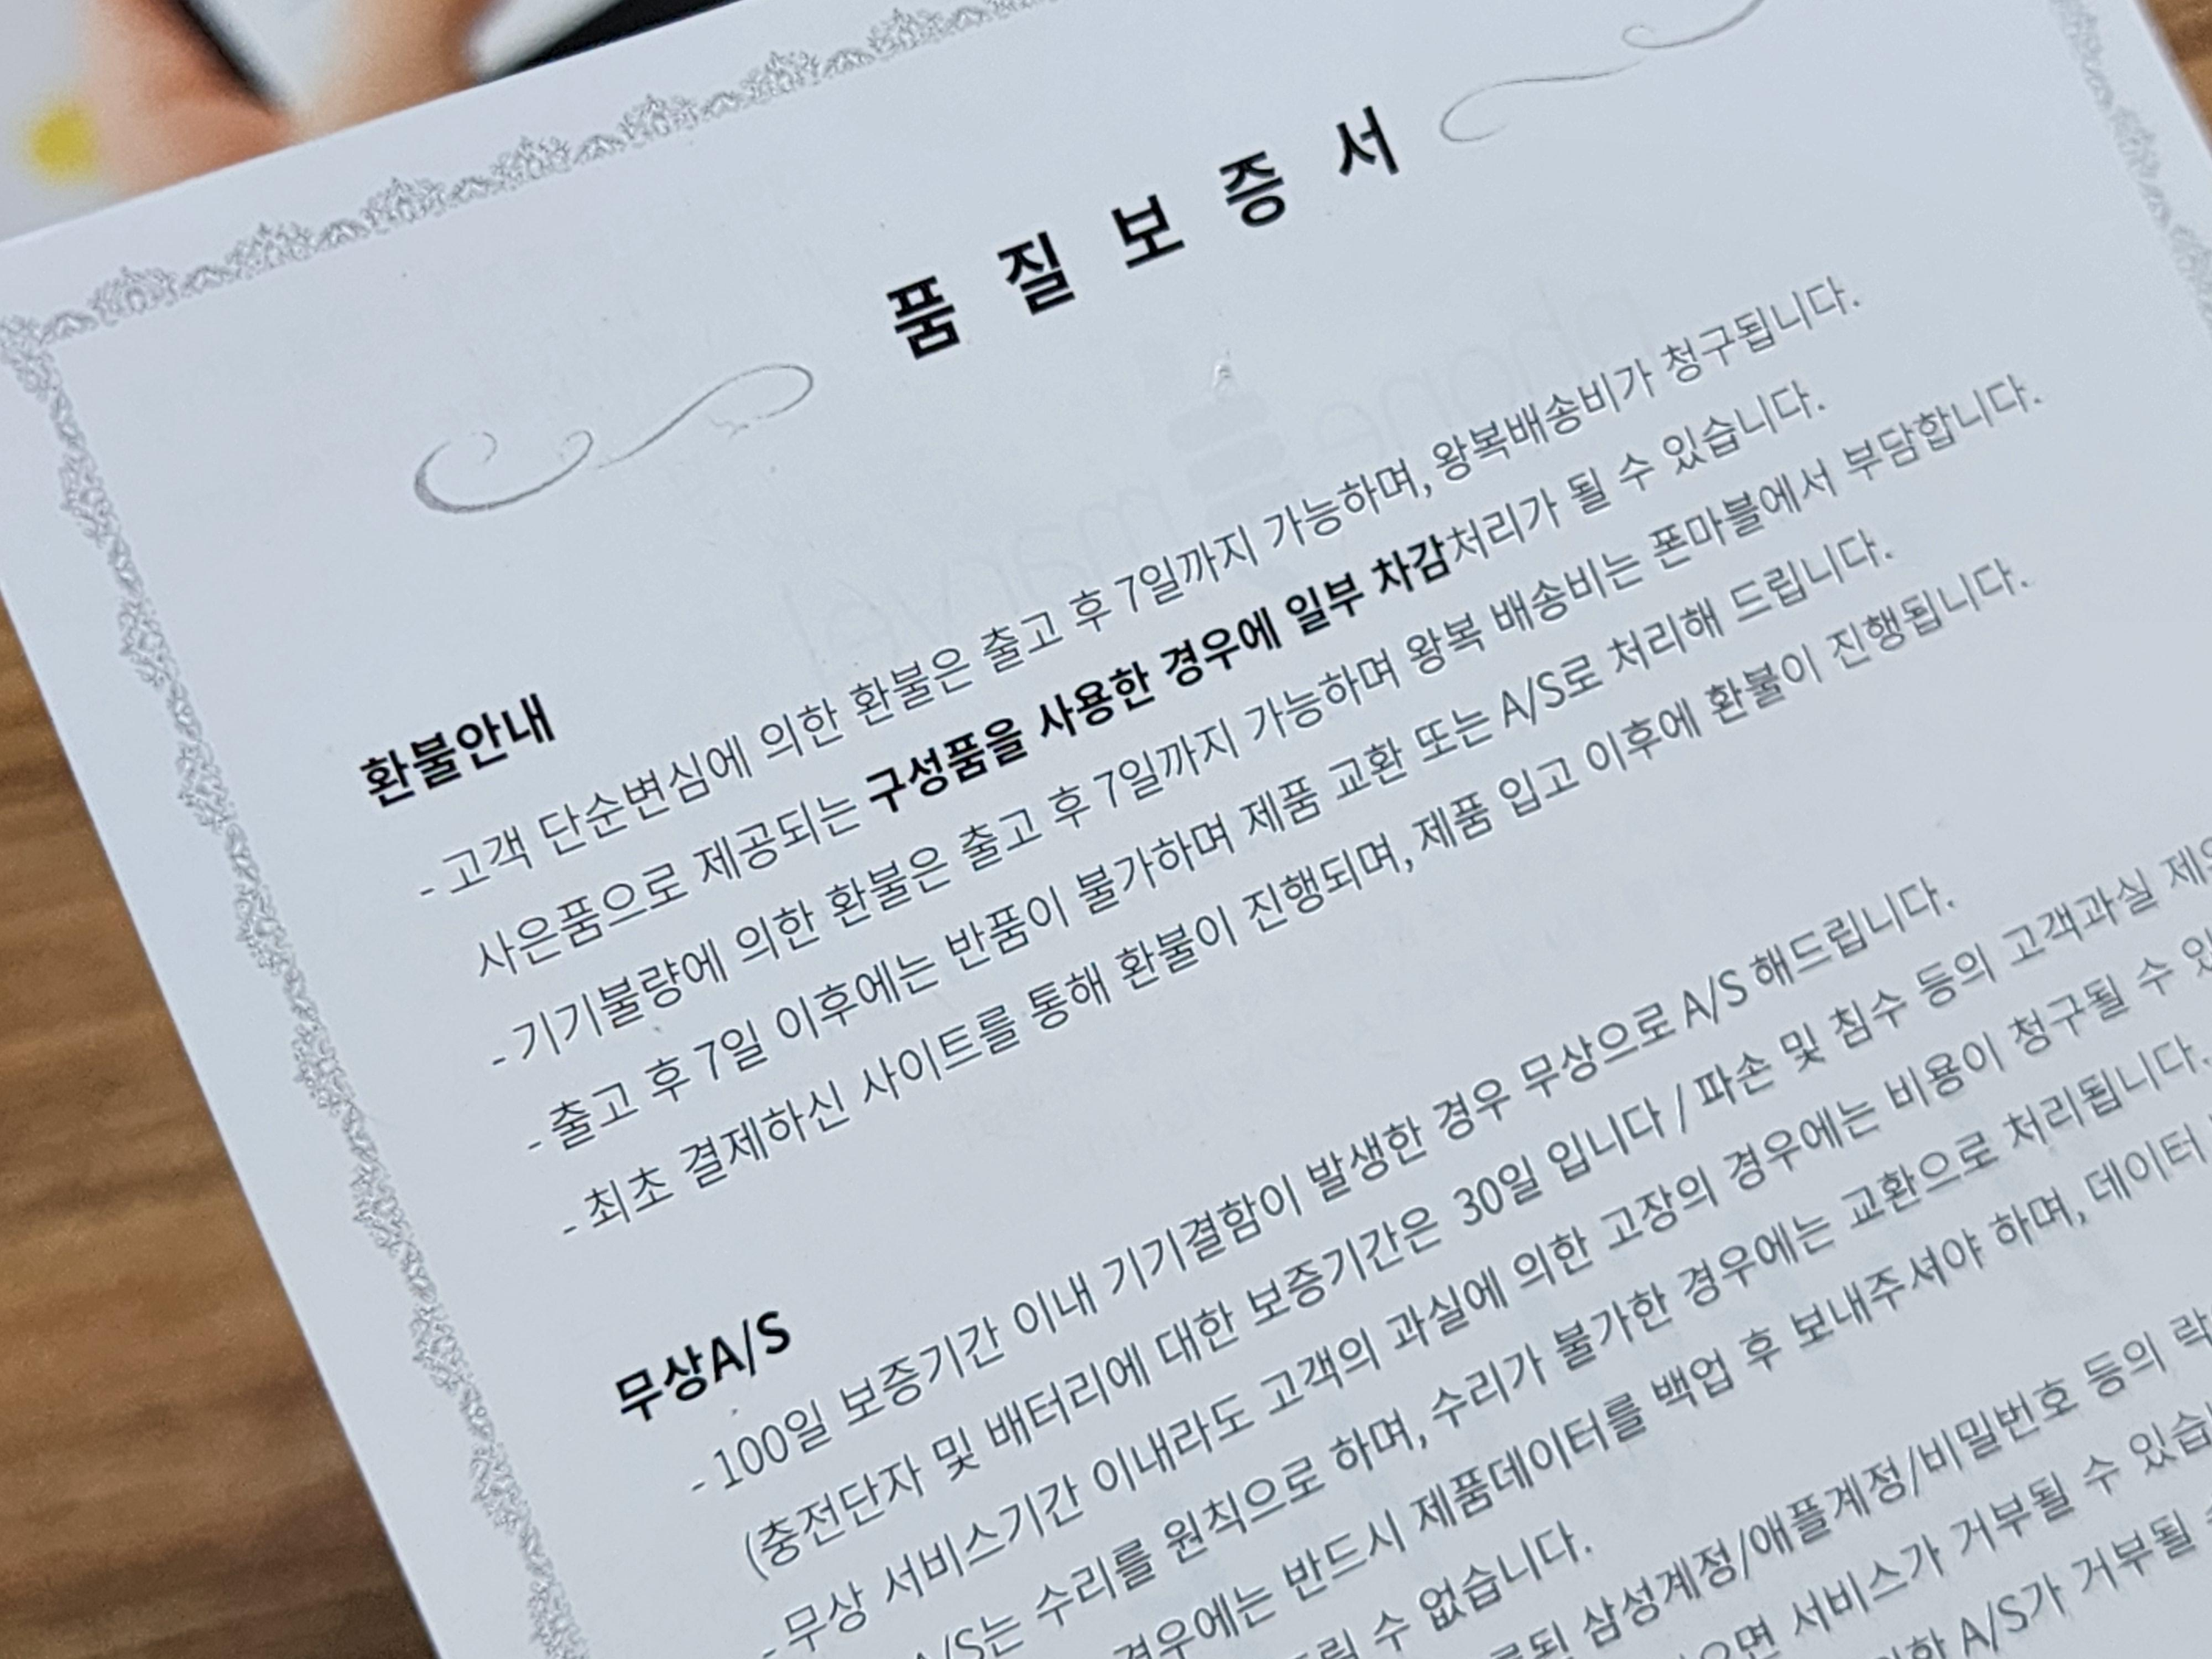 품 질 보 증 서
환불안내
- 고객 단순변심에 의한 환불은 출고 후 7일까지 가능하며, 왕복배송비가 청구됩니다.
사은품으로 제공되는 구성품을 사용한 경우에 일부 차감처리가 될 수 있습니다.
- 기기불량에 의한 환불은 출고 후 7일까지 가능하며 왕복 배송비는 폰마블에서 부담합니다.
- 출고 후 7일 이후에는 반품이 불가하며 제품 교환 또는 A/S로 처리해 드립니다.
- 최초 결제하신 사이트를 통해 환불이 진행되며, 제품 입고 이후에 환불이 진행됩니다.
무상A/S
- 100일 보증기간 이내 기기결함이 발생한 경우 무상으로 A/S 해드립니다.
(충전단자 및 배터리에 대한 보증기간은 30일 입니다 / 파손 및 침수 등의 고객과실
- 무상 서비스기간 이내라도 고객의 과실에 의한 고장의 경우에는 비용이 청구될 수
A/S는 수리를 원칙으로 하며, 수리가 불가한 경우에는 교환으로 처리됩니다.
경우에는 반드시 제품데이터를 백업 후 보내주셔야 하며, 데이터
수 없습니다.
삼성계정/애플계정/비밀번호 등의
서비스가 거부될 수
A/S가 거부될